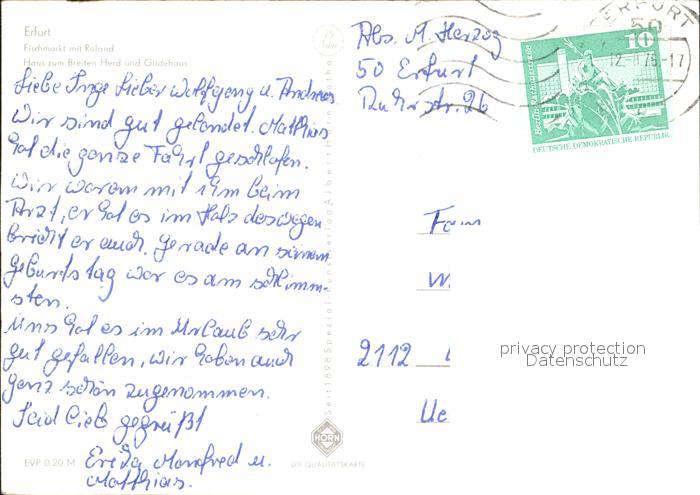 Erfurt
Fischmarkt mit Roland
Haus zum Breiten Herd und Gildehaus
Liebe Inge Lieber Wolfgang u. Andreas
Wir sind gut gelandet. Matthias
hat die ganze Fahrt geschlafen.
Wir waren mit ihm beim
Arzt, er hat es im Hals deswegen
bricht er auch. Gerade an seinem
Geburtstag war es am schlimm-
sten.
Uns hat es im Urlaub sehr
gut gefallen, wir haben auch
ganz schön zugenommen.
Seid lieb gegrüßt
Erika Manfred u.
Matthias.
EVP 0.20 M
HORN
DIE QUALITÄTSKARTE
Seit 1898 Spezial Kunstverlag Albert Horn Gotha
Abs. M. Herzog
50 Erfurt
Ruhrstr. 26
ERFURT
50
DEUTSCHE DEMOKRATISCHE REPUBLIK
10
Fam
W
2112
Ue
privacy protection
Datenschutz